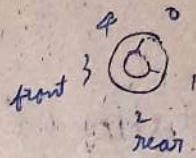 4 0
front 3 1
2
rear